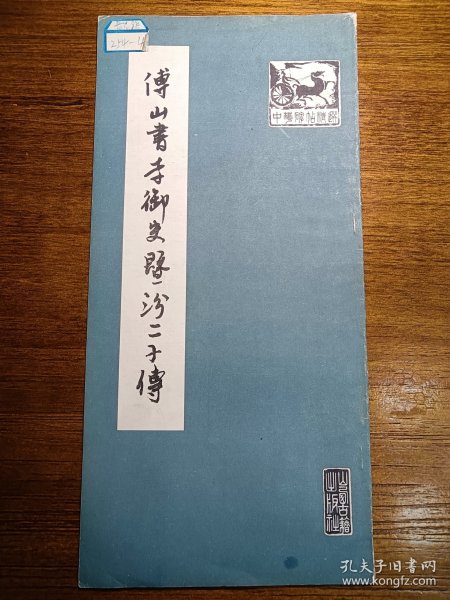 傅山書李御史暨汾二子傳
中華碑帖精選
山西古籍
出版社
孔夫子旧书网
www.kongfz.com